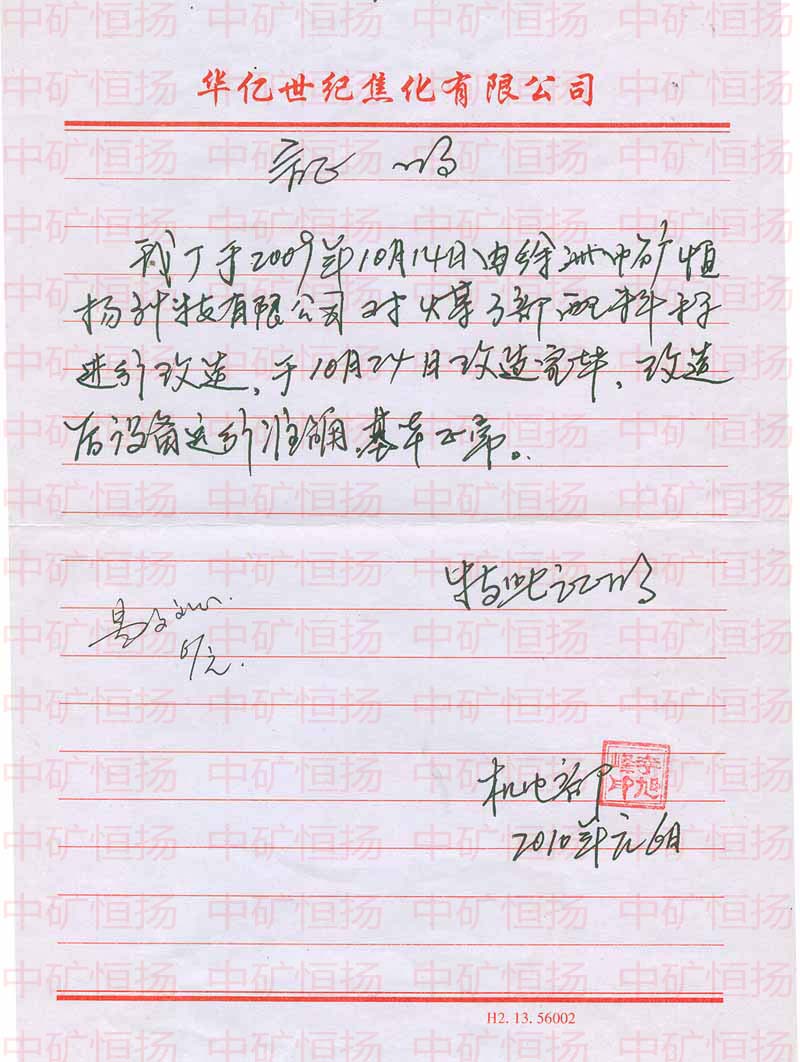 华亿世纪焦化有限公司
证 明
我厂于2009年10月14日由徐洲中矿恒
扬科技有限公司对 配料秤
进行改造，于10月24日改造完毕，改造
后设备运行准确，基本正常。
特此证明
机电部
2010年元6日
H2. 13. 56002
中矿恒扬